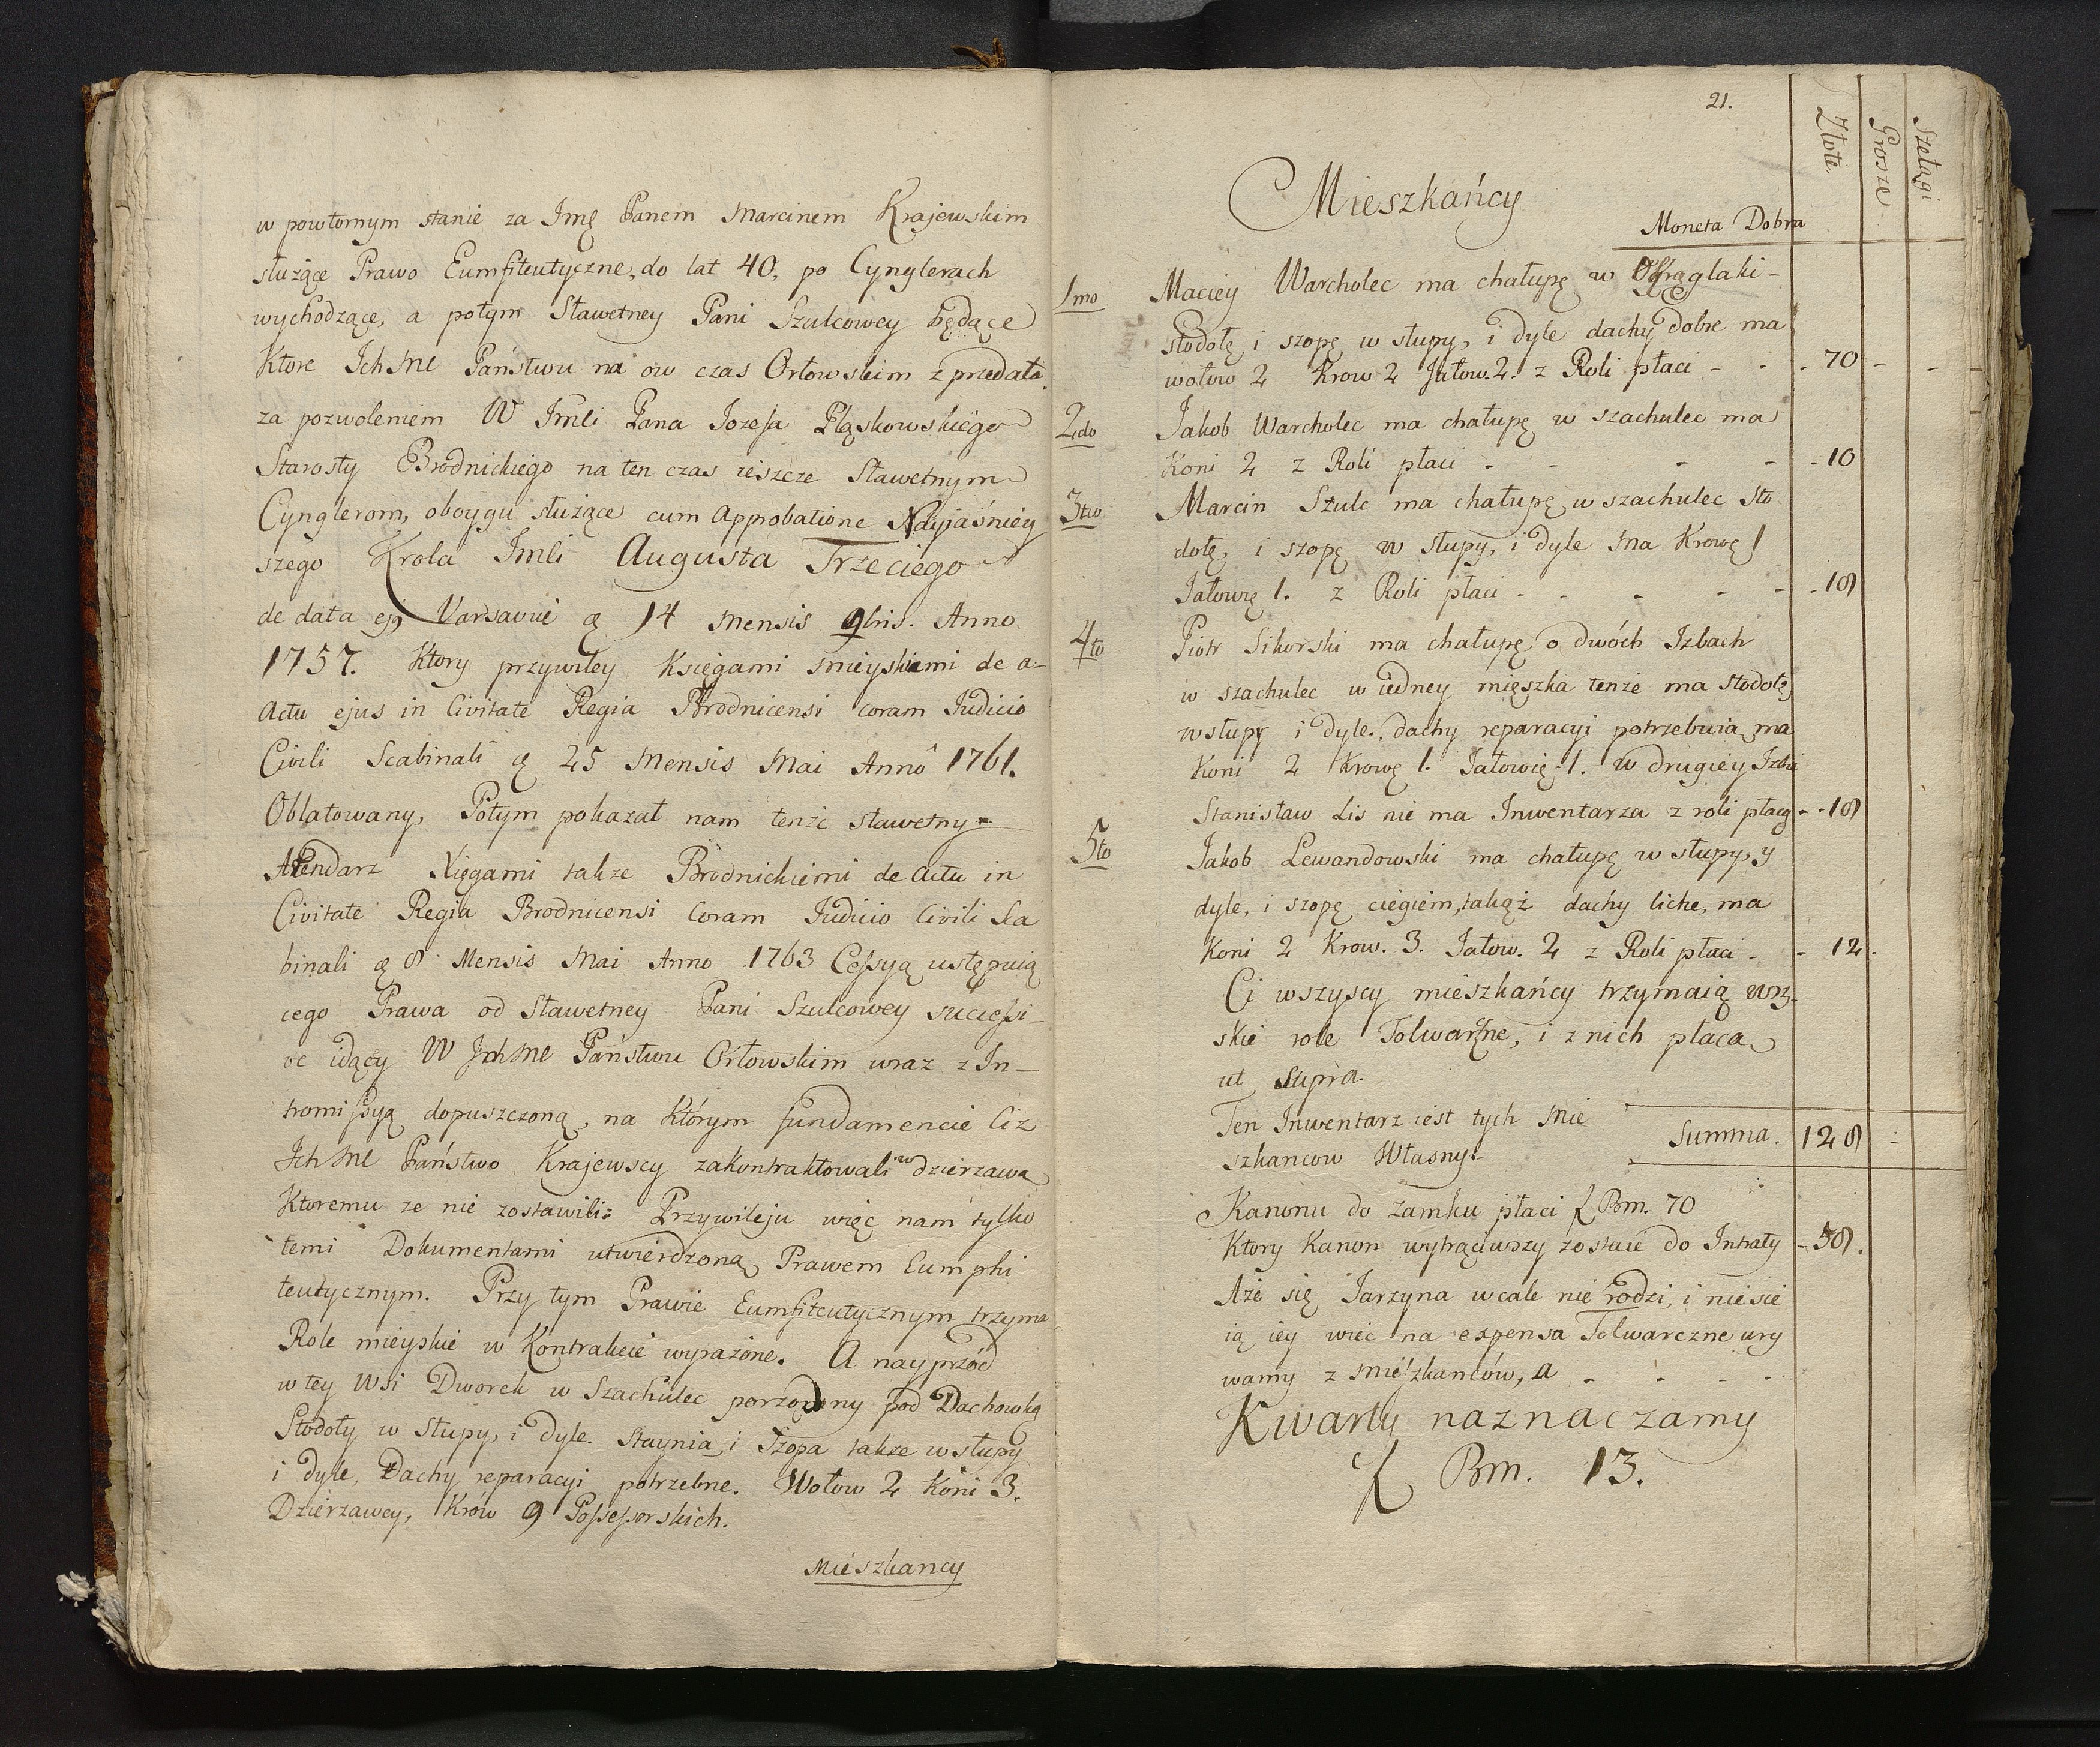 w powtornym stanie za Imę Panem Marcinem Krajewskim
służące Prawo Eumfiteutyczne, do lat 40, po Cynglerach
wychodzące, a potym Sławetney Pani Szulcowey będące
Ktore IchMC Państwu na ow czas Orłowskim z przedała
za pozwoleniem W Imci Pana Jozefa Pląskowskiego
Starosty Brodnickiego na ten czas ieszcze Sławetnym
Cynglerom, oboygu służące cum Approbatione Nayjaśniey
szego Krola Imci Augusta Trzeciego
de data ejq Varsavie q 14 Mensis 9bris. Anno
1757. Ktory przywiley Księgami mieyskiemi de a-
Actu ejus in Civitate Regia Brodnicensi coram Iudicio
Civili Scabinali q 25 Mensis Mai Anno 1761.
Oblatowany, Potym pokazał nam tenże sławetny
Arendarz Xięgami takze Brodnickiemi de Actu in
Civitate Regia Brodnicensi Coram Iudicio Civili Sca
binali q 8 Mensis Mai Anno 1763 Cessyą ustępuią
cego Prawa od Sławetney Pani Szulcowey sucessi-
ve idący W IchMC Państwu Orłowskim wraz z In-
tromissyą dopuszczoną, na którym fundamencie Ciz
IchMC Państwo Krajewscy zakontraktowali w dzierzawę
Ktoremu ze nie zostawili Przywileju więc nam tylko
temi Dokumentami utwierdzoną Prawem Eumphi
teutycznym. Przy tym Prawie Eumfiteutycznym trzyma
Role mieyskie w Kontrakcie wyrażone. A nayprzód
w tey Wsi Dworek w Szachulec porządny pod Dachowką
Stodoły w Słupy, i Dyle. Staynia i Szopa takze w słupy
i dyle, Dachy reparacyi potrzebne. Wołow 2 Koni 3.
Dzierzawcy, Krów 9 Possessorskich.
Mieszkancy
21.
Złote. Grosze Szelągi
Mieszkańcy
Moneta Dobra
1mo Maciey Warcholec ma chałupę w Okrąglaki-
stodołę i szopę w słupy, i dyle dachy dobre ma
wołow 2 Krow 2 Jałow. 2. z Roli płaci - - - 70 - -
2do Jakob Warcholec ma chałupę w szachulec ma
Koni 2 z Roli płaci - - - - - 10
3tio Marcin Szulc ma chałupę w szachulec sto
dołę, i szopę w słupy, i dyle ma Krowę 1
Jałowię 1. z Roli płaci - - - - - - 18
4to Piotr Sikorski ma chałupę o dwóch Izbach
w szachulec w iedney mięszka tenże ma stodołę
w słupy i dyle. dachy reparacyi potrzebuią ma
Koni 2 Krowę 1. Jałowię 1. w drugiey Izbie
Stanisław Lis nie ma Inwentarza z roli płacą - - 18
5to Jakob Lewandowski ma chałupę w słupy, y
dyle, i szopę ciegiem, takąż dachy liche, ma
Koni 2 Krow. 3. Jałow. 2 z Roli płaci - - 12.
Ci wszyscy mieszkańcy trzymaią
skie role Folwarzne, i z nich płacą
ut Supra.
Ten Inwentarz iest tych Mie
szkancow Własny.
Summa. 128 -
Kanonu do zamku płaci f Bm. 70
Ktory Kanon wytrąciwszy zostaie do Intraty - 58.
Aże się Jarzyna wcale nie rodzi, i nie sie
ią iey wiec na expensa Folwarczne ury
wamy z mieszkanców, a - - - -
Kwarty naznaczamy
f Bm. 13.